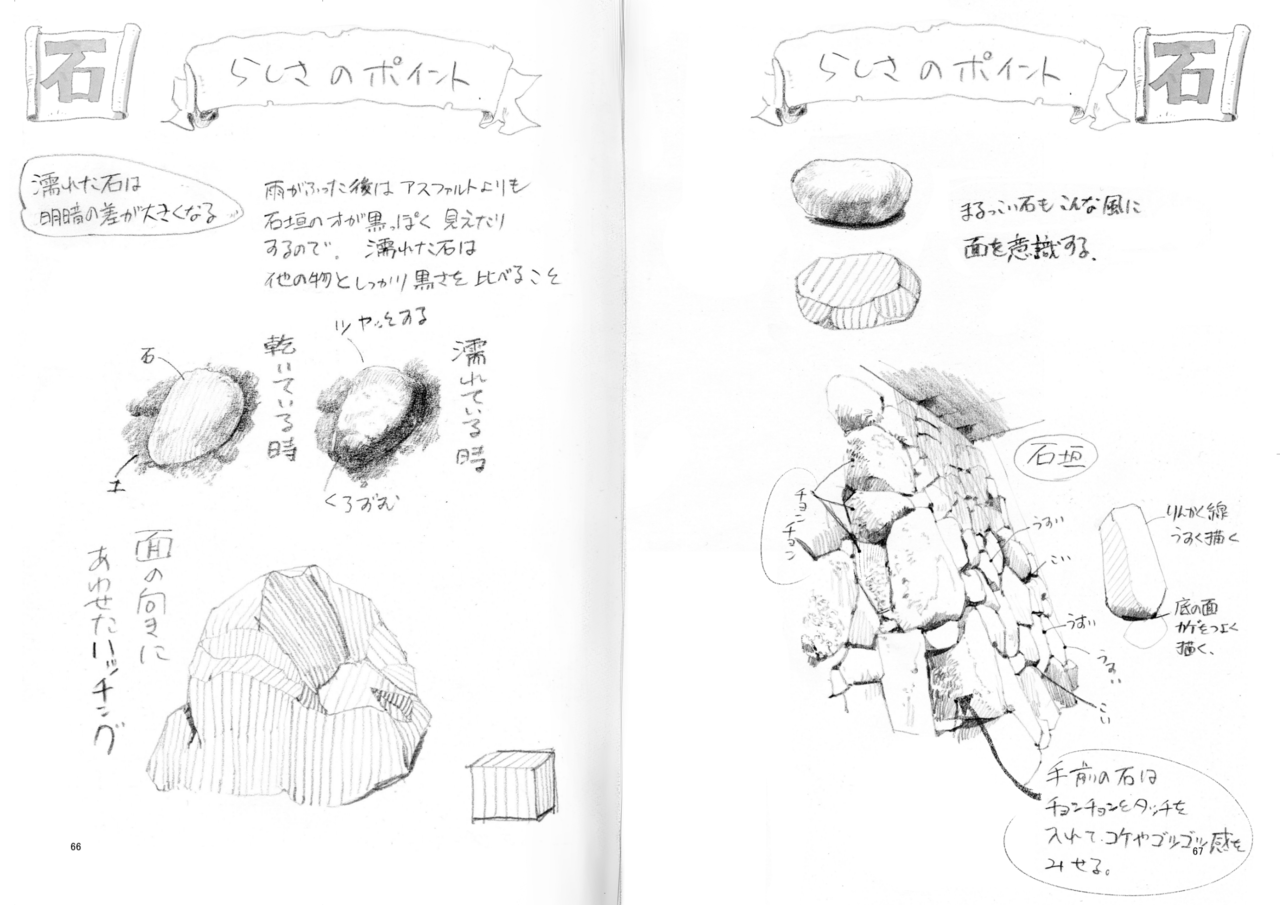 石
らしさのポイント
濡れた石は
明暗の差が大きくなる
雨がふった後は アスファルトよりも
石垣の方が黒っぽく 見えたり
するので。 濡れた石は
他の物としっかり黒さを比べること
乾いている時
石
土
濡れている時
ツヤッとする
くろずむ
面の向きに
あわせたハッチング
66
らしさのポイント
石
まるっこい石もこんな風に
面を意識する。
石垣
チョンチョン
うすい
こい
うすい
うすい
こい
りんかく線
うすく描く
底の面
カゲをつよく
描く、
手前の石は
チョンチョンとタッチを
入れて、コケやゴツゴツ感を
みせる。
67